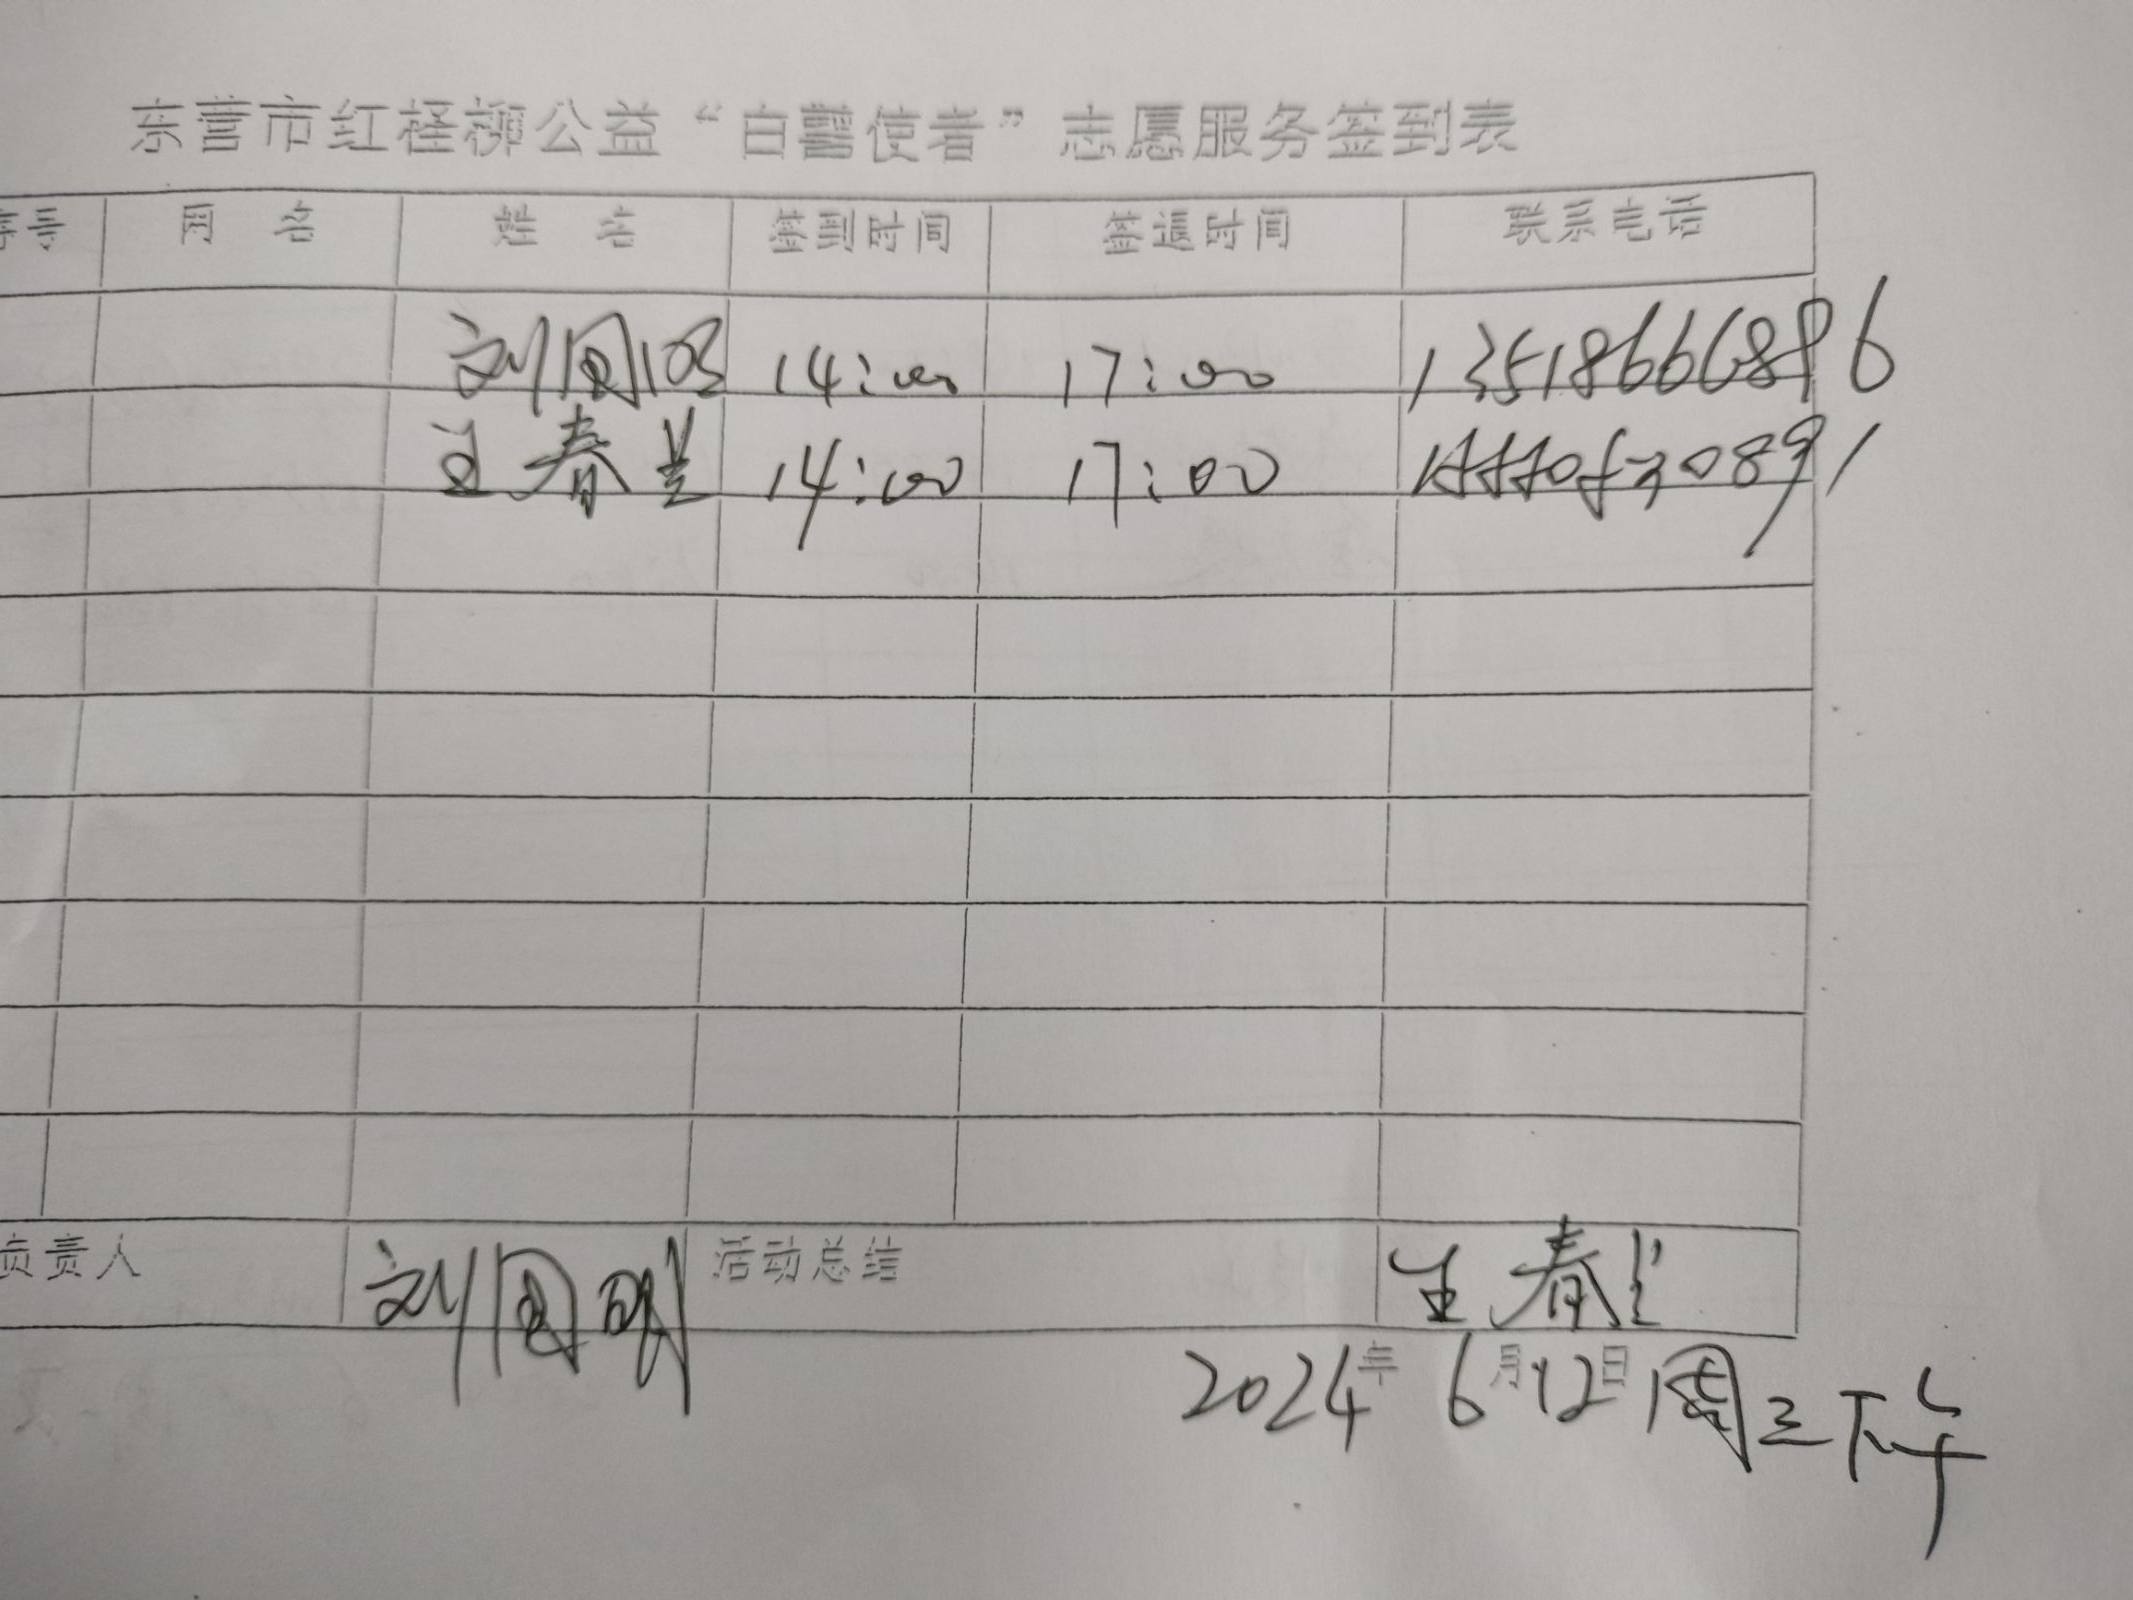 东营市红柽柳公益“白鹭使者”志愿服务签到表
序号 网 名 姓 名 签到时间 签退时间 联系电话
刘国明 14:00 17:00 13518666896
王春兰 14:00 17:00
负责人 刘国明 活动总结 王春兰
2024年 6月12日 周三下午